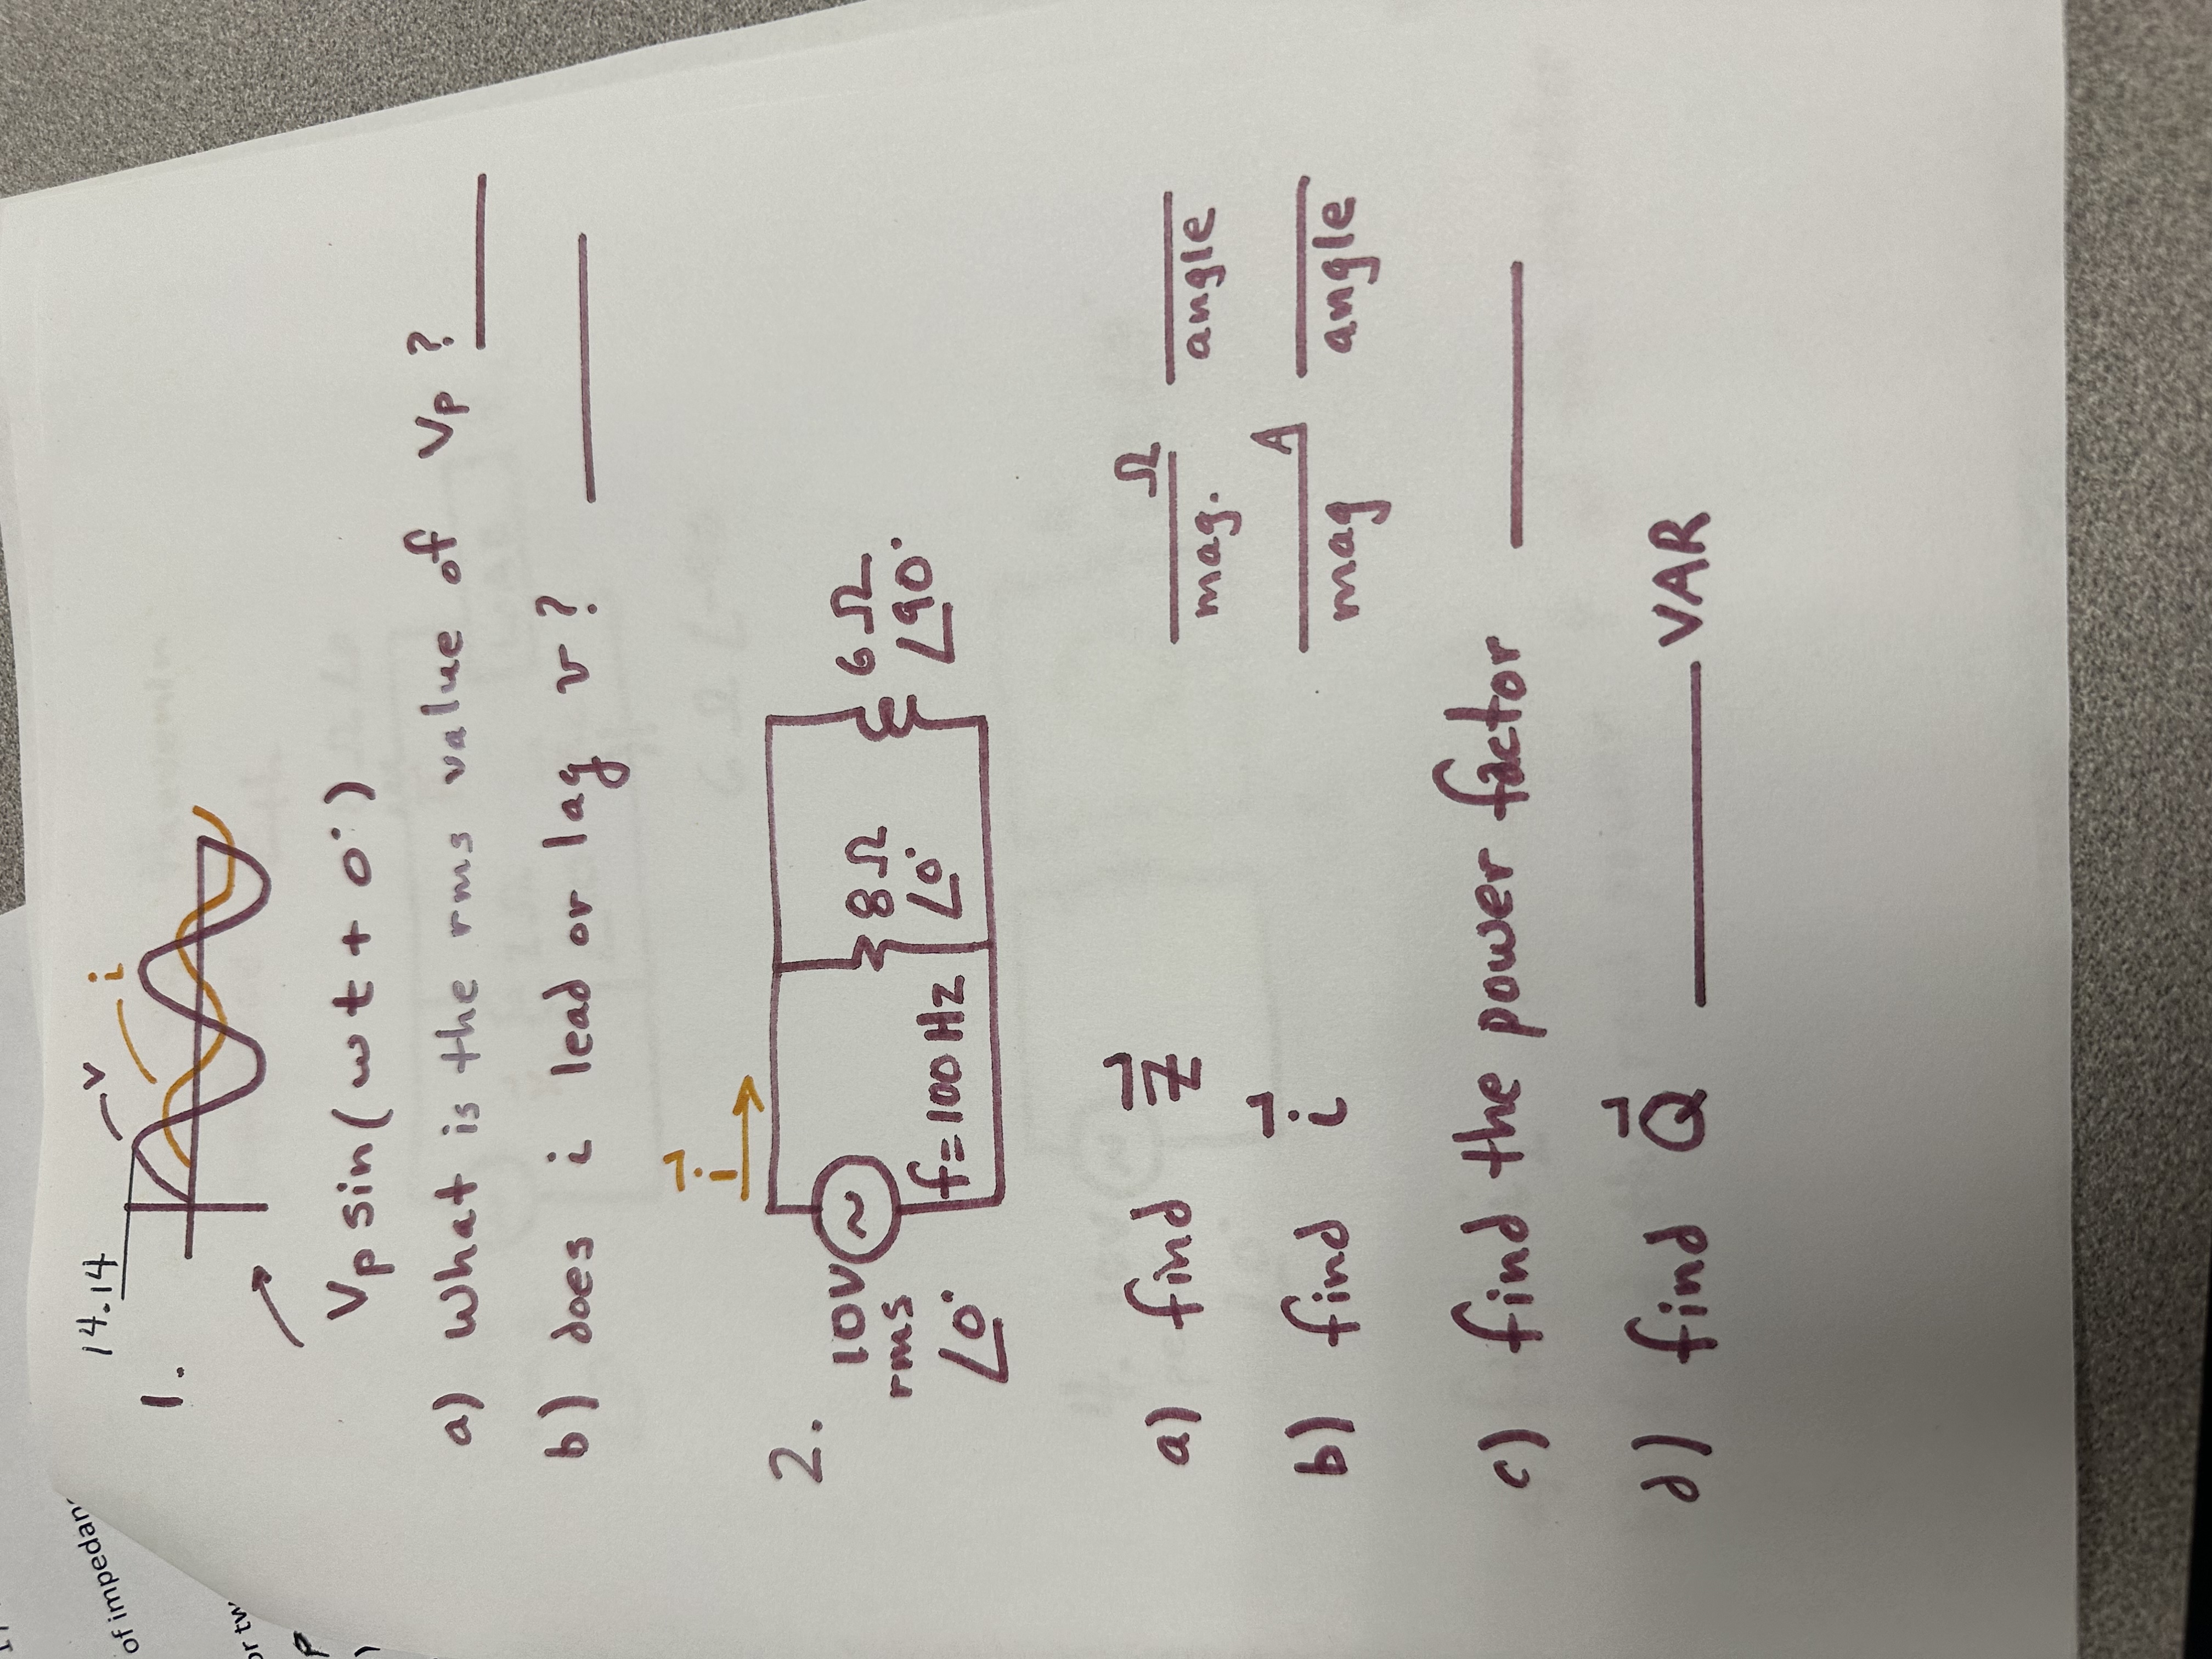 14.14
v
i
1.
Vp sin(ωt + 0°)
a) What is the rms value of Vp?
b) does i lead or lag v?
2.
i
10V
rms
∠0°
f=100Hz
8Ω
∠0°
6Ω
∠90°
a) find Z
Ω
mag. angle
b) find i
A
mag angle
c) find the power factor
d) find Q VAR
of impedan
or tw